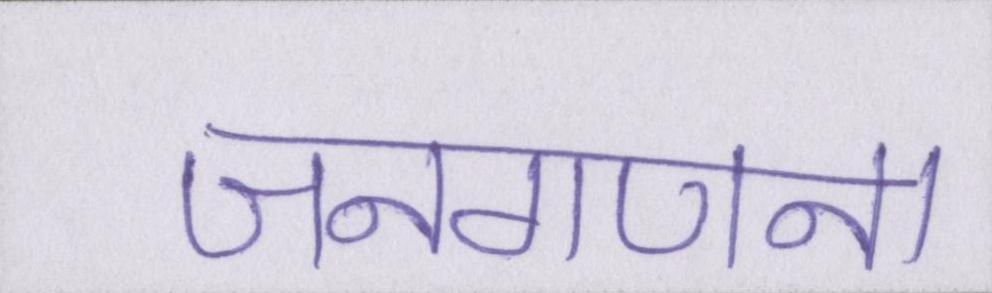 जनगणना